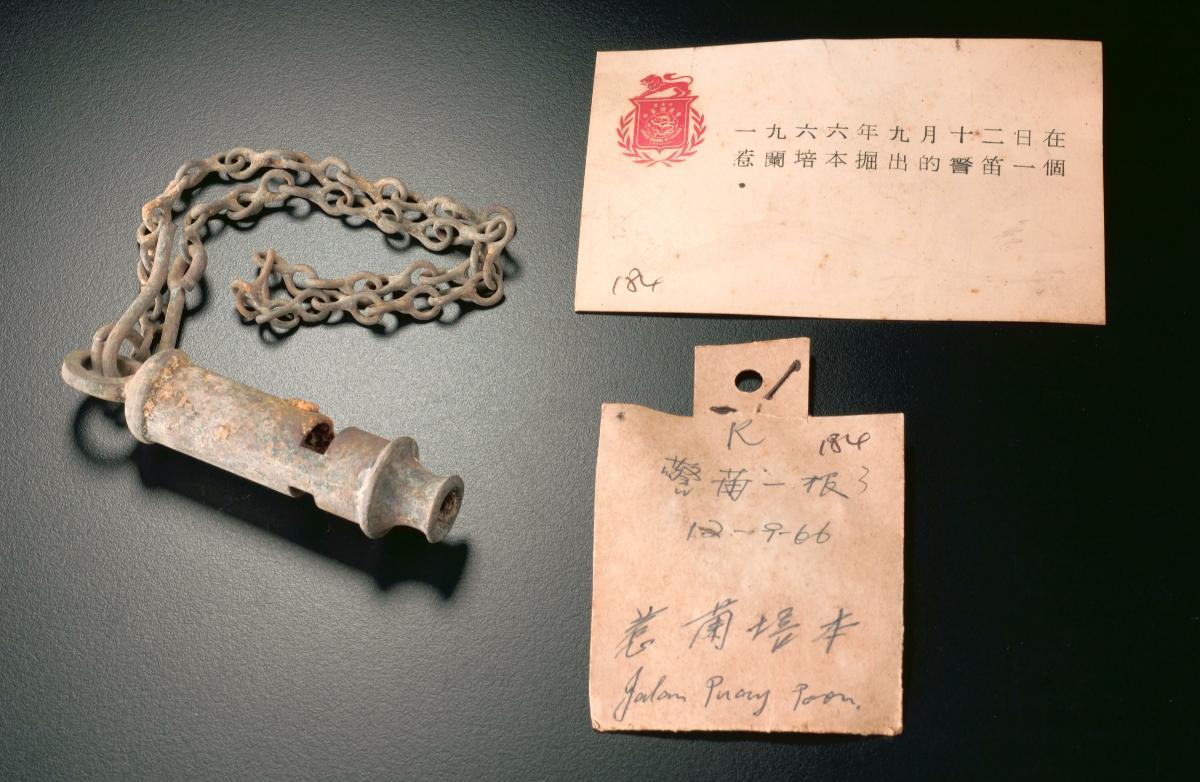 一九六六年九月十二日在
惹蘭培本掘出的警笛一個
。
184
R
184
警笛一板3
12-9-66
惹蘭培本
Jalan Puay Poon.